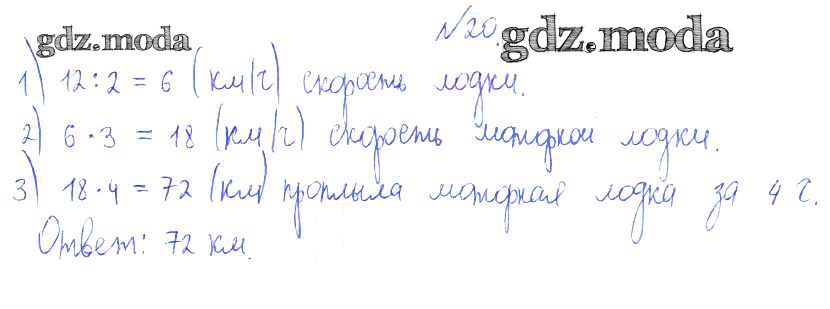 №20.
gdz.moda gdz.moda
1) 12:2 = 6 (км/ч) скорость лодки.
2) 6·3 = 18 (км/ч) скорость моторной лодки.
3) 18·4 = 72 (км) проплыла моторная лодка за 4 ч.
Ответ: 72 км.